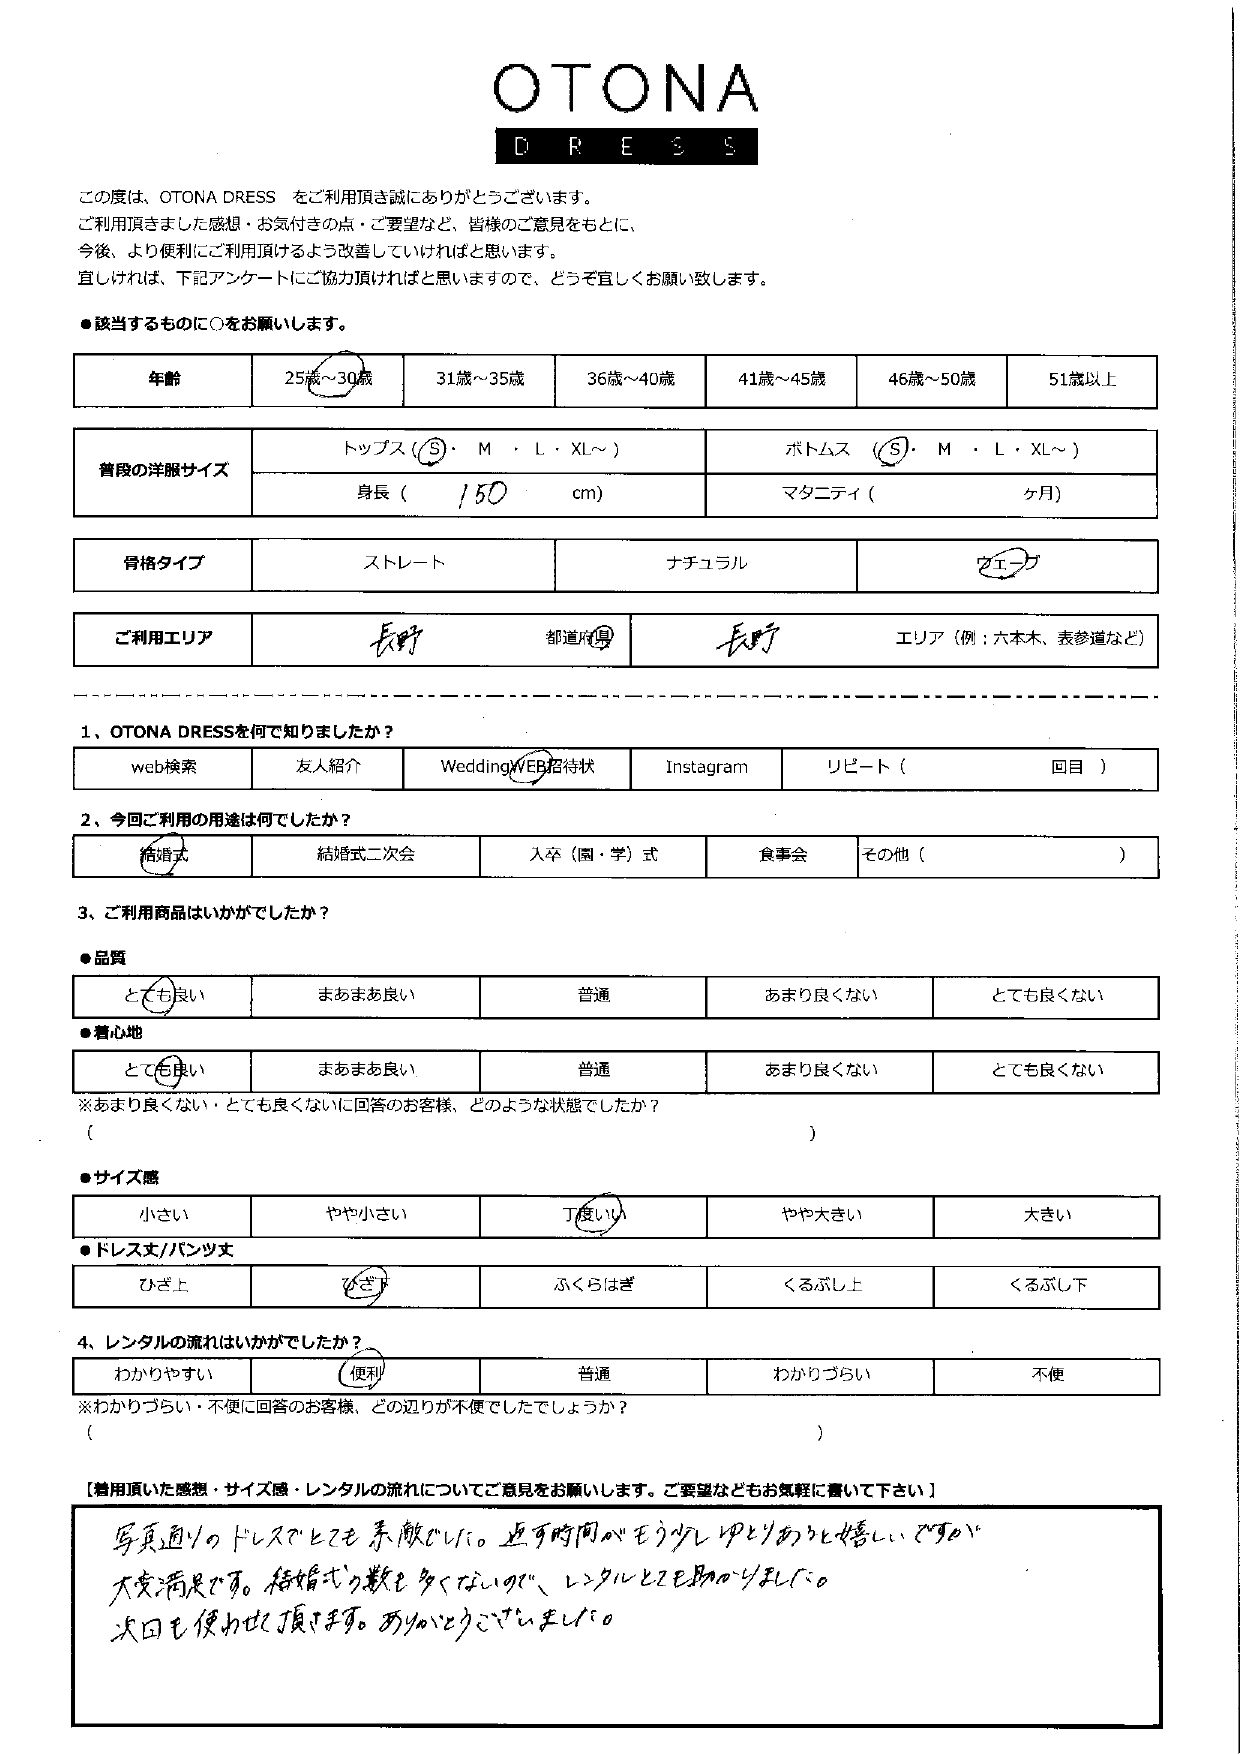 OTONA
DRESS
この度は、OTONA DRESS　をご利用頂き誠にありがとうございます。
ご利用頂きました感想・お気付きの点・ご要望など、皆様のご意見をもとに、
今後、より便利にご利用頂けるよう改善していければと思います。
宜しければ、下記アンケートにご協力頂ければと思いますので、どうぞ宜しくお願い致します。
●該当するものに○をお願いします。
年齢 25歳～30歳 31歳～35歳 36歳～40歳 41歳～45歳 46歳～50歳 51歳以上
普段の洋服サイズ トップス (S・ M ・ L ・ XL～ ) ボトムス (S)・ M ・ L ・ XL～ )
身長 ( 150 cm) マタニティ ( ヶ月)
骨格タイプ ストレート ナチュラル ウェーブ
ご利用エリア 長野 都道府県 長野 エリア（例：六本木、表参道など）
1、OTONA DRESSを何で知りましたか？
web検索 友人紹介 WeddingWEB招待状 Instagram リピート（ 回目 ）
2、今回ご利用の用途は何でしたか？
結婚式 結婚式二次会 入卒（園・学）式 食事会 その他（ ）
3、ご利用商品はいかがでしたか？
●品質
とても良い まあまあ良い 普通 あまり良くない とても良くない
●着心地
とても良い まあまあ良い 普通 あまり良くない とても良くない
※あまり良くない・とても良くないに回答のお客様、どのような状態でしたか？
（ ）
●サイズ感
小さい やや小さい 丁度いい やや大きい 大きい
●ドレス丈/パンツ丈
ひざ上 ひざ下 ふくらはぎ くるぶし上 くるぶし下
4、レンタルの流れはいかがでしたか？
わかりやすい 便利 普通 わかりづらい 不便
※わかりづらい・不便に回答のお客様、どの辺りが不便でしたでしょうか？
（ ）
【着用頂いた感想・サイズ感・レンタルの流れについてご意見をお願いします。ご要望などもお気軽に書いて下さい】
写真通りのドレスでとても素敵でした。返す時間がもう少しゆとりあると嬉しいですが
大変満足です。結婚式の数も多くないので、レンタルとても助かりました。
次回も使わせて頂きます。ありがとうございました。